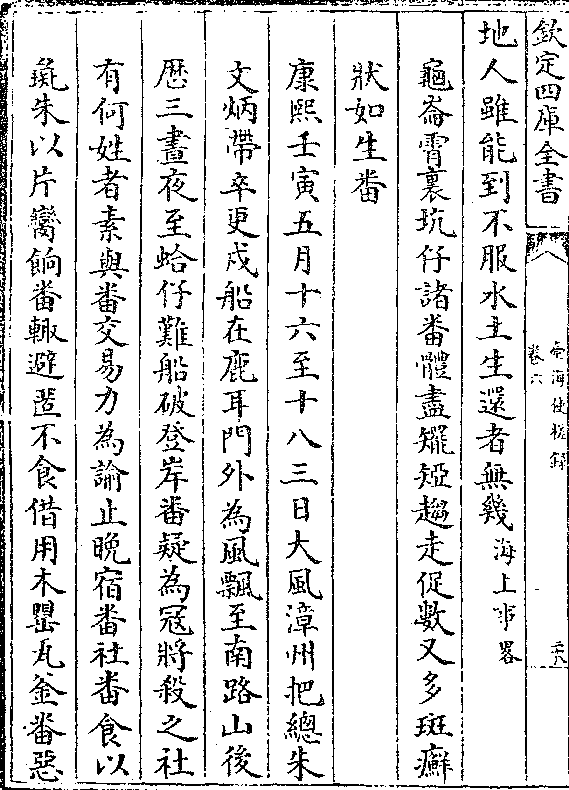 欽定四庫全書
臺海使槎録
卷六
三十八
地人雖能到不服水土生還者無幾海上事畧
龜崙霄裏坑仔諸番體盡矲矮趨走促數又多斑癬
狀如生番
康熙壬寅五月十六至十八三日大風漳州把總朱
文炳帶卒更戍船在鹿耳門外為風飄至南路山後
歴三晝夜至蛤仔難船破登岸番疑為寇將殺之社
有何姓者素與番交易力為諭止晩宿番社番食以
毻朱以片臠餉番輙避匿不食借用木罌瓦釜番惡